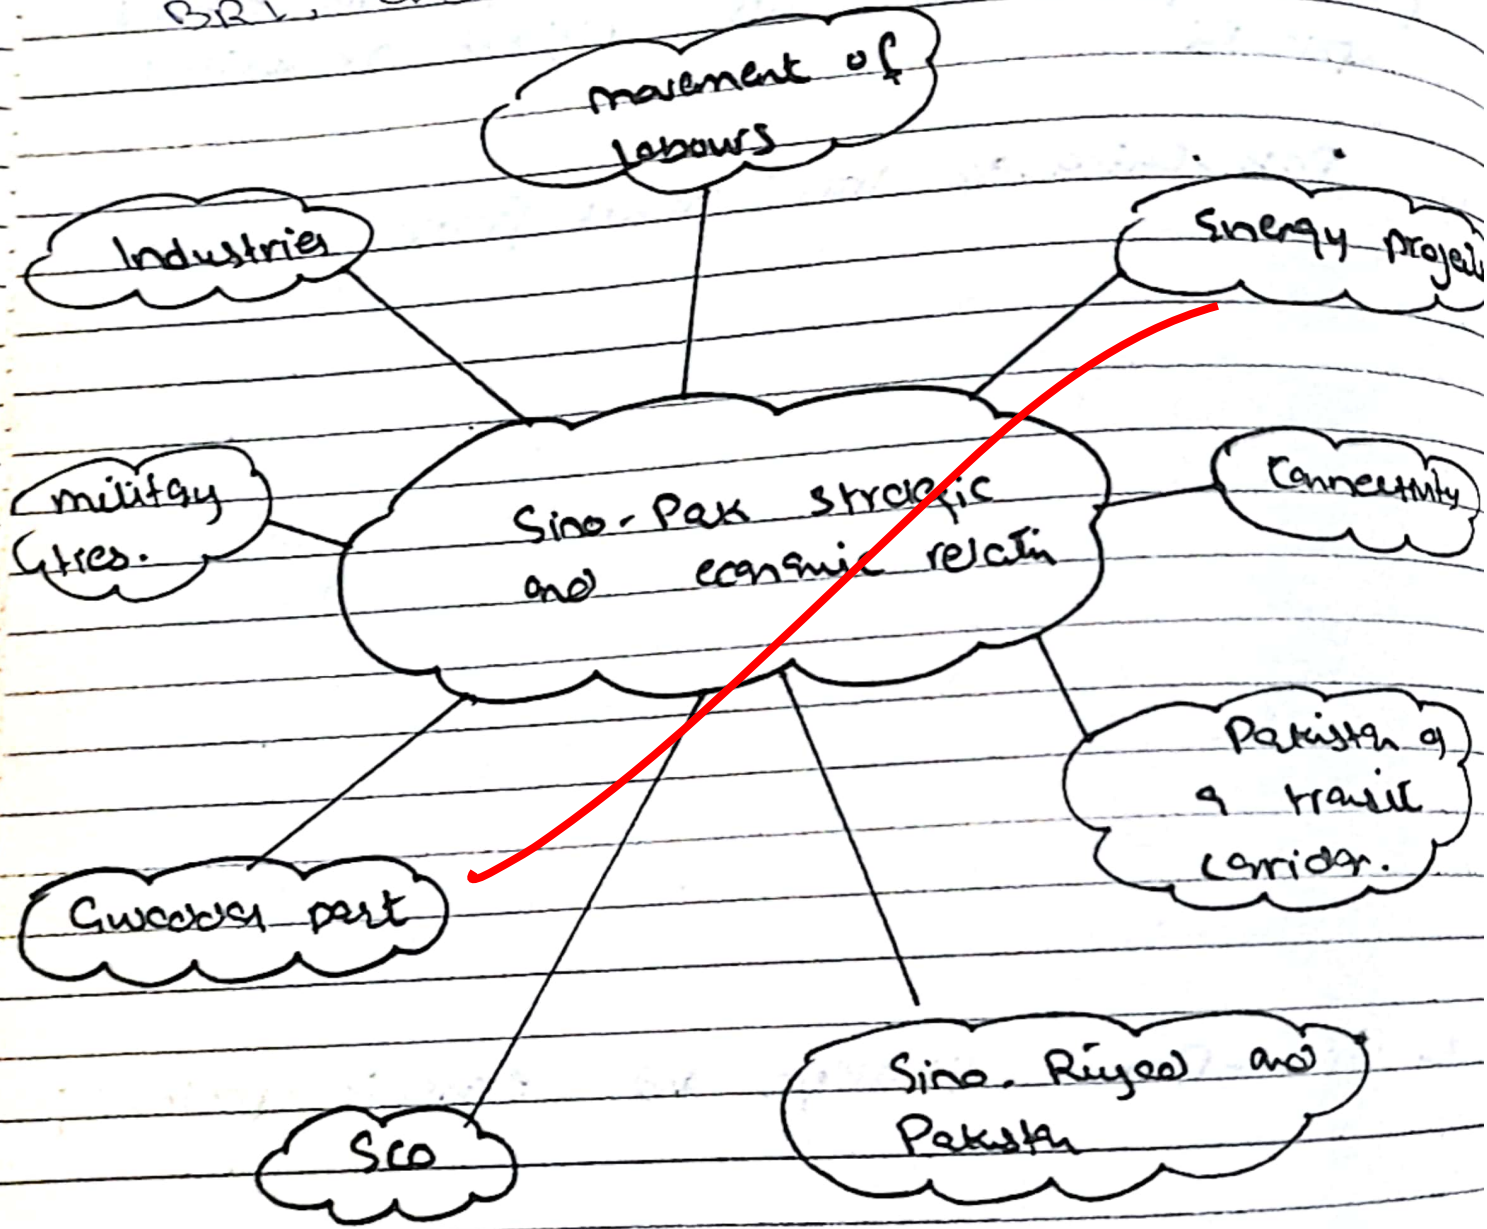 BRI,
movement of
labours
Industries
Energy projects
military
ties.
Connectivity
Sino-Pak strategic
and economic relation
Pakistan as
a transit
corridor.
Gwadar port
Sino. Riyad and
Pakistan
SCO